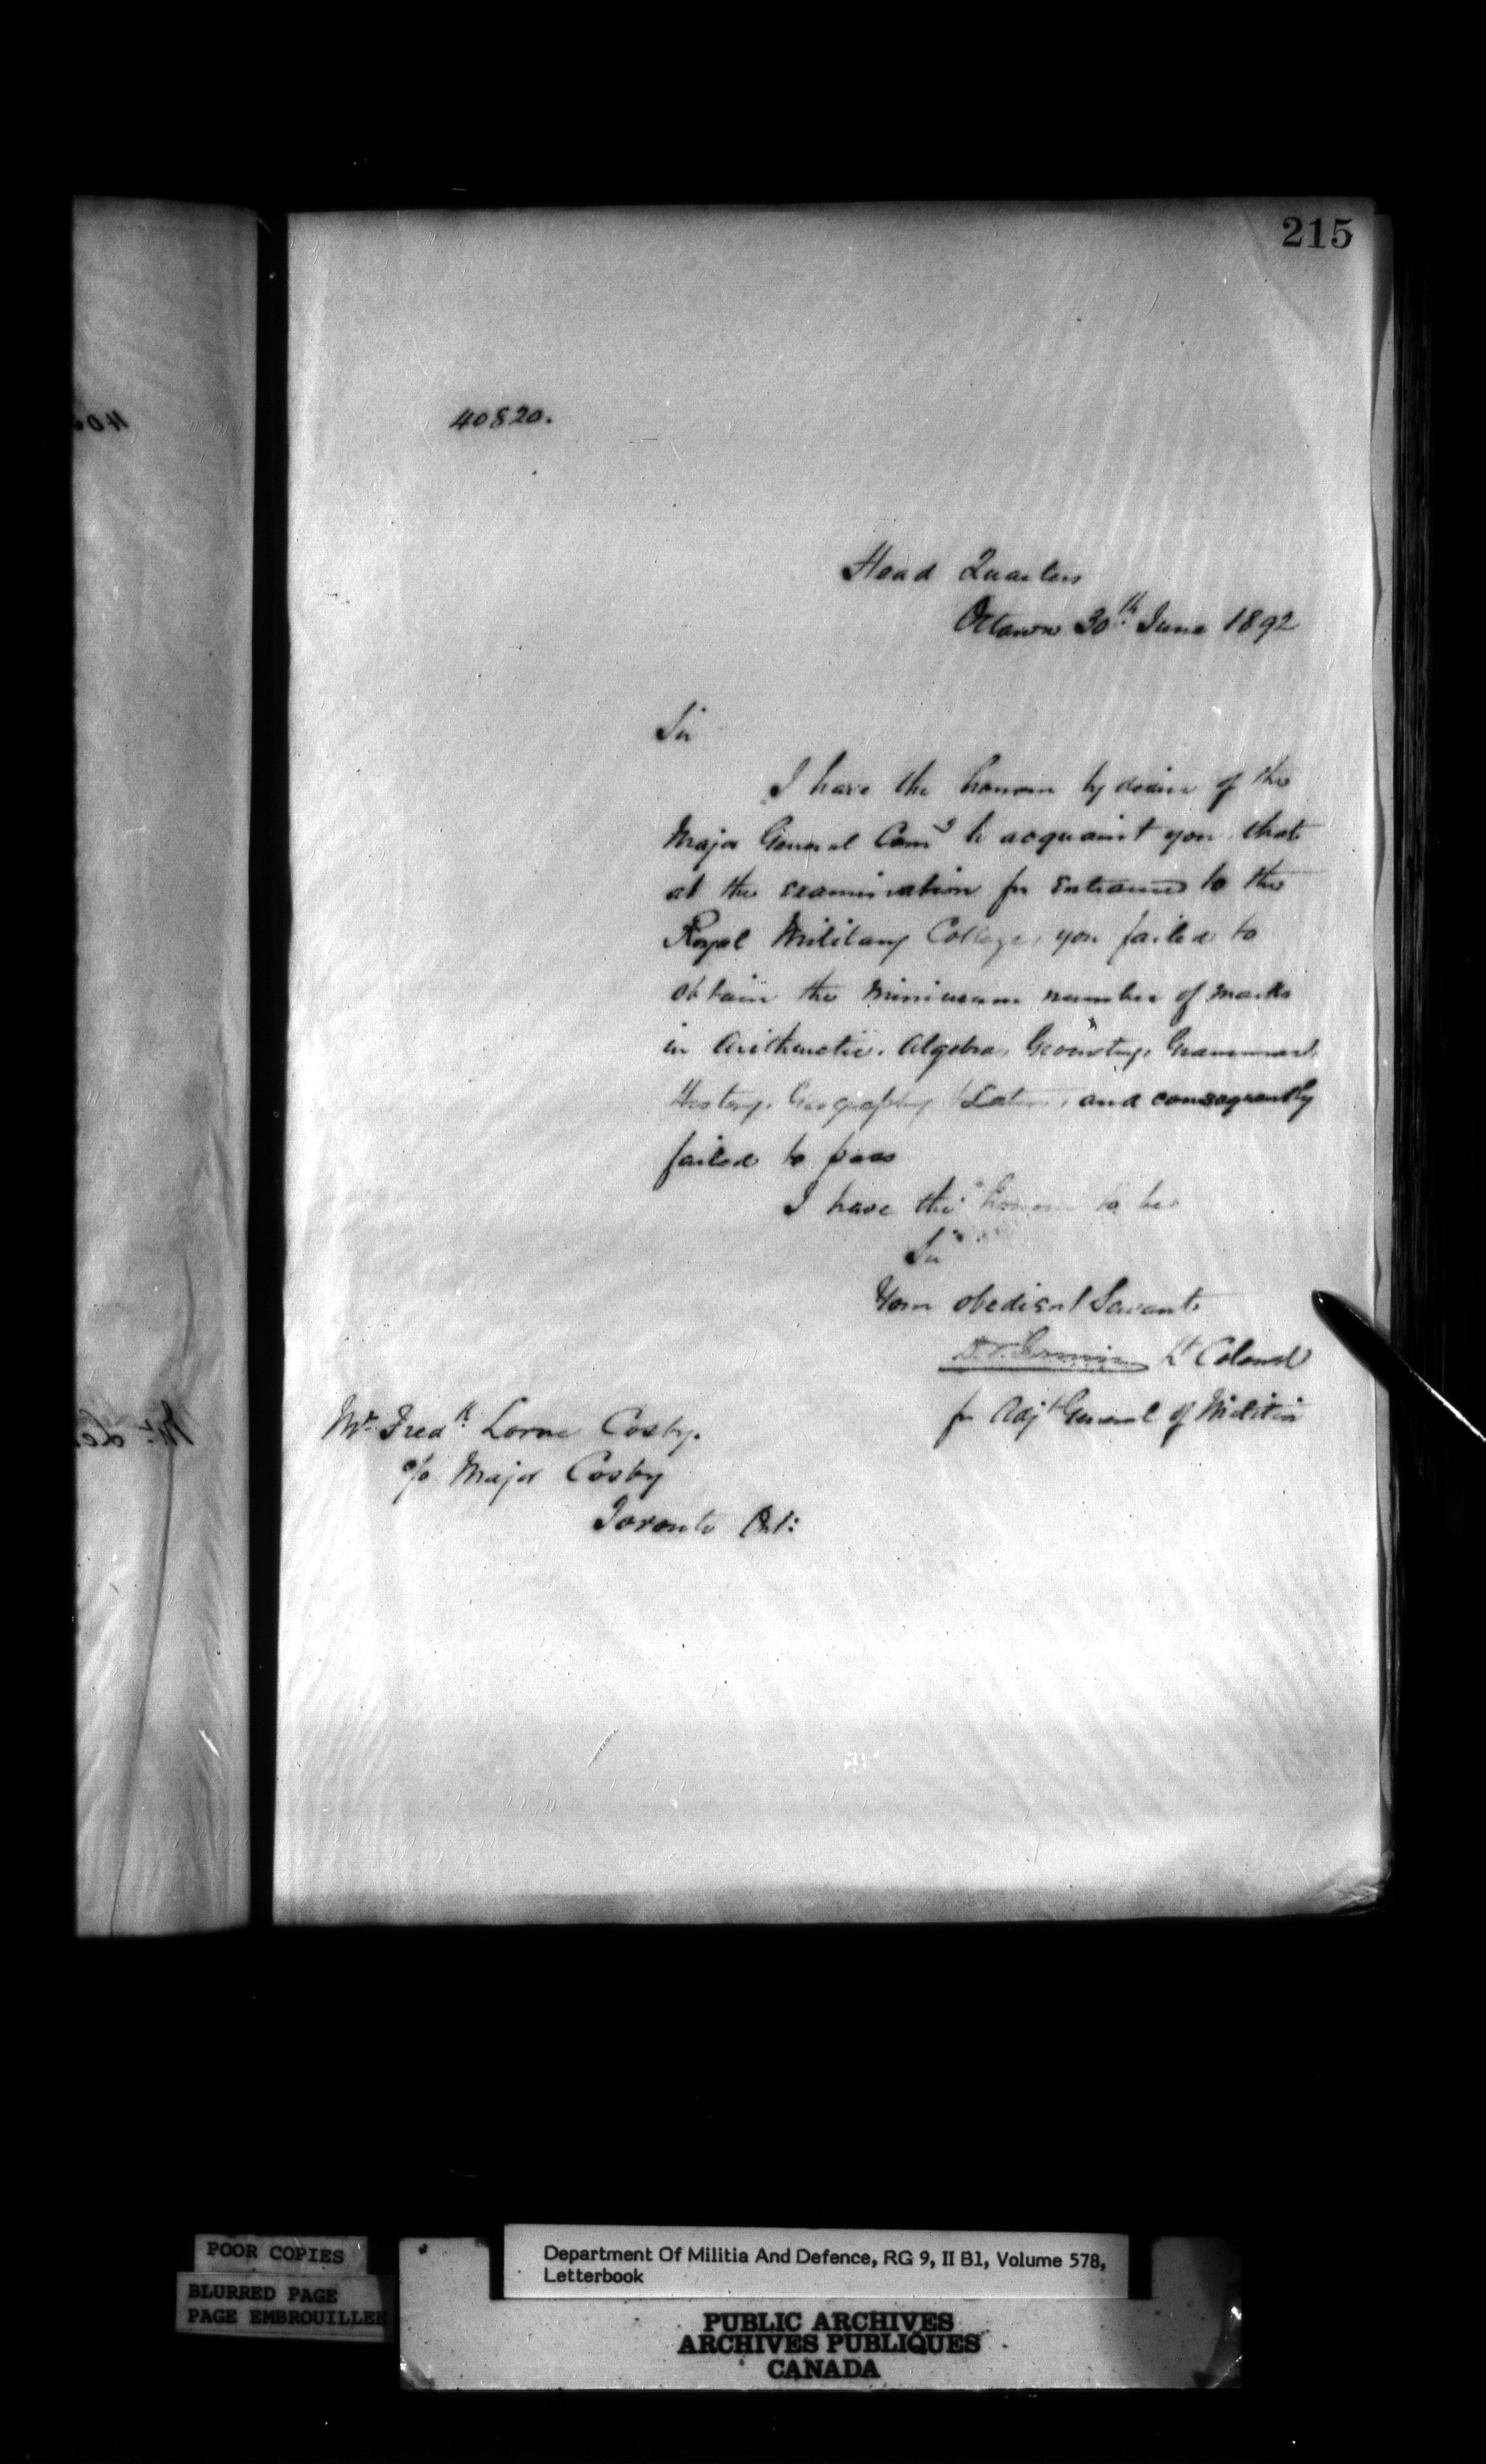 215
40820.
Head Quarters
Ottawa 30th June 1892
Sir
I have the honour by desire of the
Major General Comg to acquaint you that
at the examination for entrance to the
Royal Military College, you failed to
obtain the minimum number of marks
in Arithmetic, Algebra, Geometry, Grammar,
History, Geography & Latin, and consequently
failed to pass
I have the honour to be
Sir
Your obedient Servant
Lt Colonel
for Adjt General of Militia
Mr Fredk Lorne Cosby.
c/o Major Cosby
Toronto Ont:
POOR COPIES
BLURRED PAGE
PAGE EMBROUILLEE
Department Of Militia And Defence, RG 9, II B1, Volume 578,
Letterbook
PUBLIC ARCHIVES
ARCHIVES PUBLIQUES
CANADA